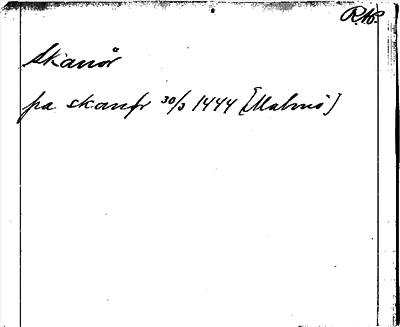 R.16.
Skanör
pa skanfr 30/3 1444 [Malmö]